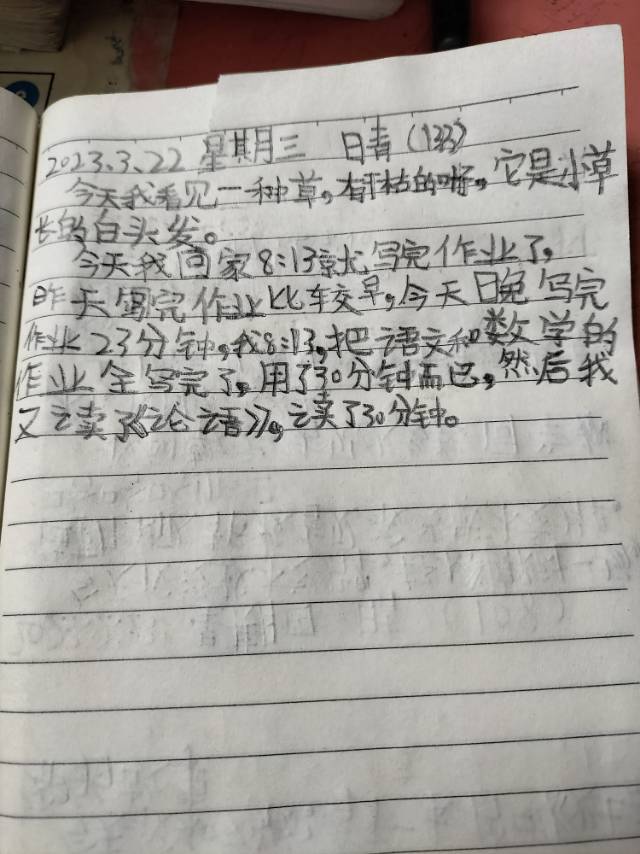 2023.3.22 星期三 日晴(133)
今天我看见一种草,有干枯的,它是小草
长的白头发。
今天我回家8:13就写完作业了,
昨天写完作业比较早,今天晚写完
作业23分钟,我8:13,把语文和数学的
作业全写完了,用了30分钟而已,然后我
又读了《论语》,读了30分钟。